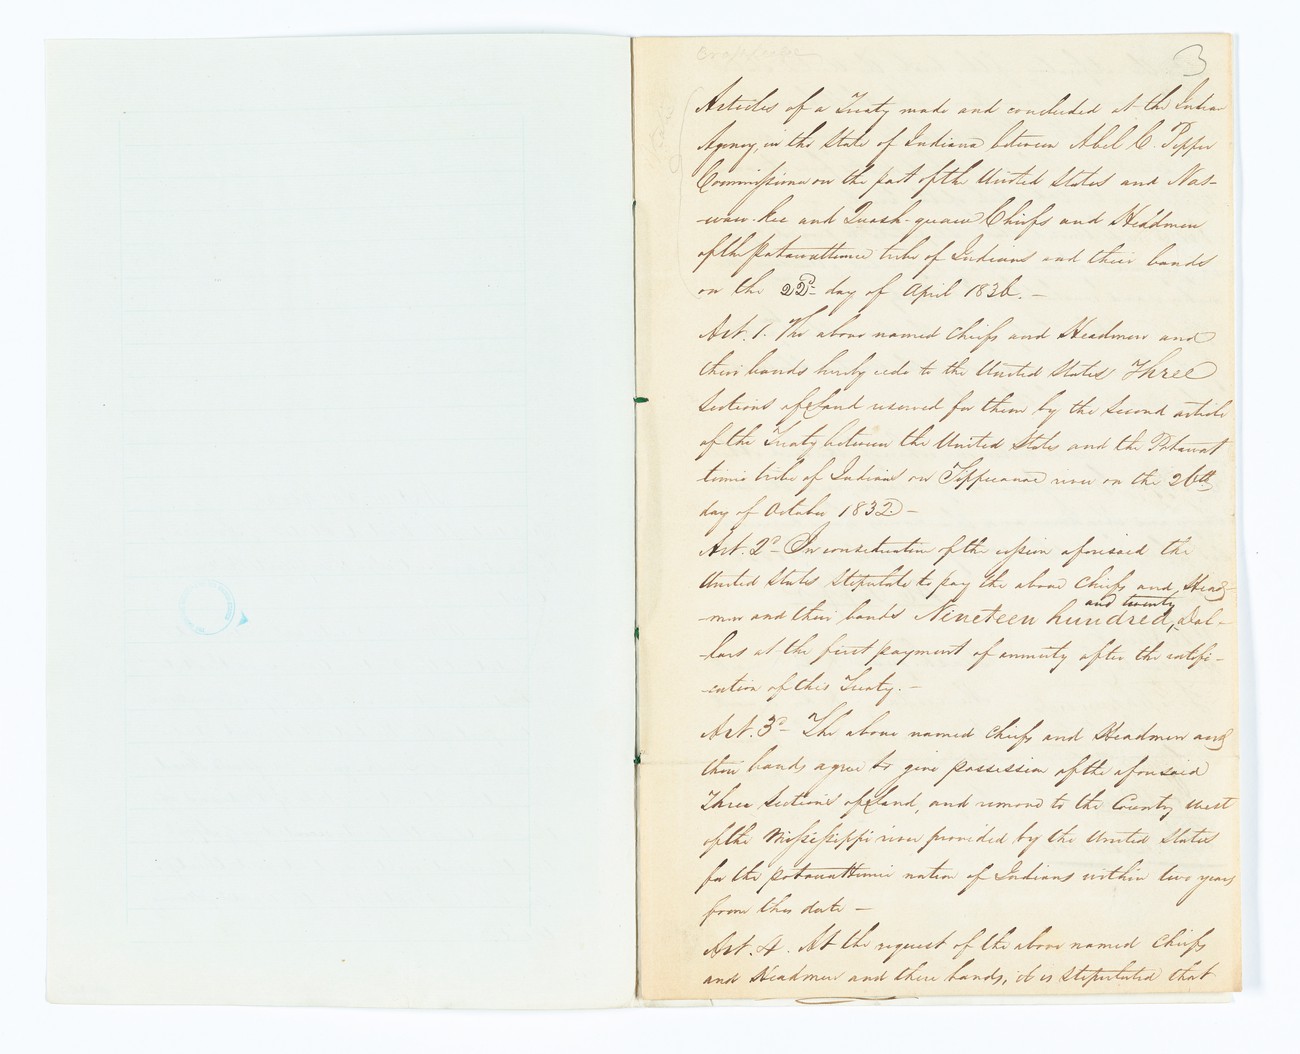 3
Articles of a Treaty made and concluded at the Indian
Agency, in the State of Indiana between Abel C. Pepper
Commissioner on the part of the United States and Nas-
-waw-kee and Quash-quaw Chiefs and Headmen
of the Patawattimie tribe of Indians and their bands
on the 22d day of April 1836. -
Art. 1. The above named Chiefs and Headmen and
their bands hereby cede to the United States Three
Sections of Land reserved for them by the second article
of the Treaty between the United States and the Patawat
timie tribe of Indians on Tippecanoe river on the 26th
day of October 1832. -
Art. 2d - In consideration of the cession aforesaid the
United States stipulate to pay the above Chiefs and Head-
and twenty
-men and their bands Nineteen hundred, Dol-
-lars at the first payment of annuity after the ratifi-
-cation of this Treaty. -
Art. 3d - The above named Chiefs and Headmen and
their bands agree to give possession of the aforesaid
Three Sections of Land, and remove to the Country west
of the Mississippi river provided by the United States
for the patawattimie nation of Indians within two years
from this date -
Art. 4. At the request of the above named Chiefs
and Headmen and their bands, it is stipulated that